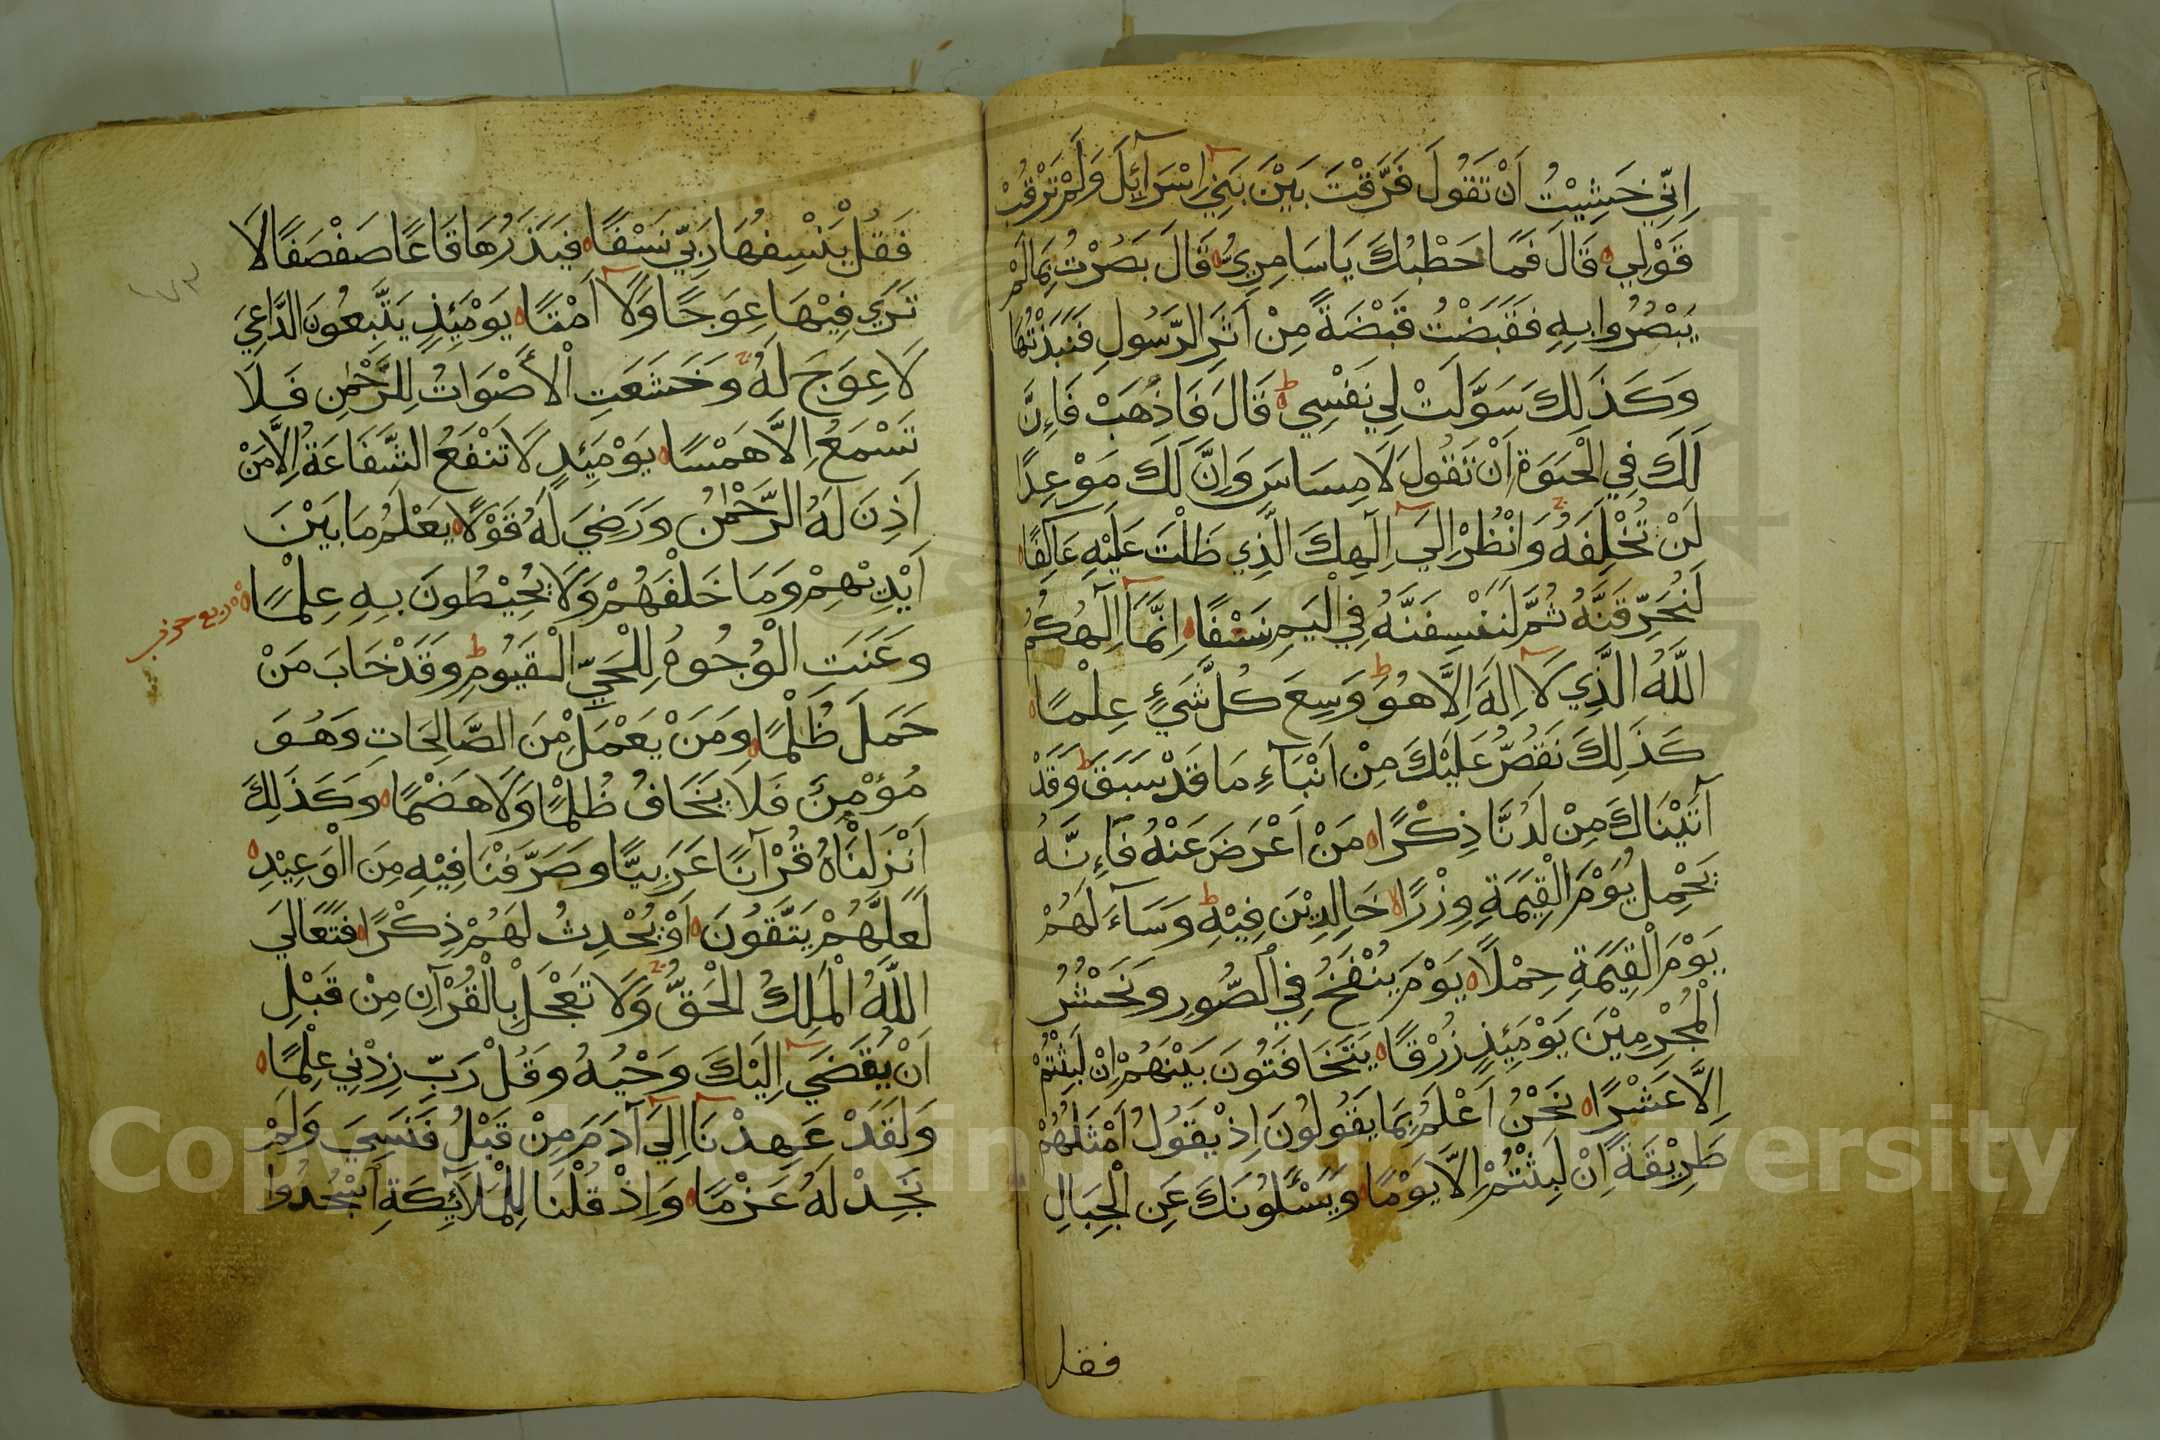 اِنِّي خَشِيْتُ اَنْ تَقُولَ فَرَّقْتَ بَيْنَ بَنِي اِسْرَآئِلَ وَلَمْ تَرْقُبْ
قَوْلِي قَالَ فَمَا خَطْبُكَ يَا سَامِرِيُّ قَالَ بَصُرْتُ بِمَا لَمْ
يَبْصُرُوا بِهِ فَقَبَضْتُ قَبْضَةً مِنْ اَثَرِ الرَّسُولِ فَنَبَذْتُهَا
وَكَذَلِكَ سَوَّلَتْ لِي نَفْسِي ط قَالَ فَاذْهَبْ فَاِنَّ
لَكَ فِي الْحَيَوةِ اَنْ تَقُولَ لَا مِسَاسَ وَاِنَّ لَكَ مَوْعِدًا
لَنْ تُخْلَفَهُ ج وَانْظُرْ اِلَى اِلَهِكَ الَّذِي ظَلْتَ عَلَيْهِ عَاكِفًا
لَنُحَرِّقَنَّهُ ثُمَّ لَنَنْسِفَنَّهُ فِي الْيَمِّ نَسْفًا اِنَّمَآ اِلَهُكُمُ
اللَّهُ الَّذِي لَآ اِلَهَ اِلَّا هُوَ ط وَسِعَ كُلَّ شَيْءٍ عِلْمًا
كَذَلِكَ نَقُصُّ عَلَيْكَ مِنْ اَنْبَآءِ مَا قَدْ سَبَقَ ط وَقَدْ
آتَيْنَاكَ مِنْ لَدُنَّا ذِكْرًا مَنْ اَعْرَضَ عَنْهُ فَاِنَّهُ
يَحْمِلُ يَوْمَ الْقِيَمَةِ وِزْرًا لا خَالِدِيْنَ فِيْهِ ط وَسَآءَ لَهُمْ
يَوْمَ الْقِيَمَةِ حِمْلًا يَوْمَ يُنْفَخُ فِي الصُّورِ وَنَحْشُرُ
الْمُجْرِمِيْنَ يَوْمَئِذٍ زُرْقًا يَتَخَافَتُونَ بَيْنَهُمْ اِنْ لَبِثْتُمْ
اِلَّا عَشْرًا نَحْنُ اَعْلَمُ بِمَا يَقُولُونَ اِذْ يَقُولُ اَمْثَلُهُمْ
طَرِيْقَةً اِنْ لَبِثْتُمْ اِلَّا يَوْمًا وَيَسْئَلُونَكَ عَنِ الْجِبَالِ
فقل
فَقُلْ يَنْسِفُهَا رَبِّي نَسْفًا فَيَذَرُهَا قَاعًا صَفْصَفًا لَا
تَرَى فِيْهَا عِوَجًا وَلَآ اَمْتًا يَوْمَئِذٍ يَتَّبِعُونَ الدَّاعِيَ
لَا عِوَجَ لَهُ ج وَخَشَعَتِ الْأَصْوَاتُ لِلرَّحْمٰنِ فَلَا
تَسْمَعُ اِلَّا هَمْسًا يَوْمَئِذٍ لَا تَنْفَعُ الشَّفَاعَةُ اِلَّا مَنْ
اَذِنَ لَهُ الرَّحْمٰنُ وَرَضِيَ لَهُ قَوْلًا يَعْلَمُ مَا بَيْنَ
اَيْدِيْهِمْ وَمَا خَلْفَهُمْ وَلَا يُحِيْطُونَ بِهِ عِلْمًا
ربع حزب
وَعَنَتِ الْوُجُوهُ لِلْحَيِّ الْقَيُّومِ ط وَقَدْ خَابَ مَنْ
حَمَلَ ظُلْمًا وَمَنْ يَعْمَلْ مِنَ الصَّالِحَاتِ وَهُوَ
مُؤْمِنٌ فَلَا يَخَافُ ظُلْمًا وَلَا هَضْمًا وَكَذَلِكَ
اَنْزَلْنَاهُ قُرْآنًا عَرَبِيًّا وَصَرَّفْنَا فِيْهِ مِنَ الْوَعِيْدِ
لَعَلَّهُمْ يَتَّقُونَ اَوْ يُحْدِثُ لَهُمْ ذِكْرًا فَتَعَالَى
اللَّهُ الْمَلِكُ الْحَقُّ ج وَلَا تَعْجَلْ بِالْقُرْآنِ مِنْ قَبْلِ
اَنْ يُقْضَى اِلَيْكَ وَحْيُهُ وَقُلْ رَبِّ زِدْنِي عِلْمًا
وَلَقَدْ عَهِدْنَآ اِلَى آدَمَ مِنْ قَبْلُ فَنَسِيَ وَلَمْ
نَجِدْ لَهُ عَزْمًا وَاِذْ قُلْنَا لِلْمَلَآئِكَةِ اسْجُدُوا